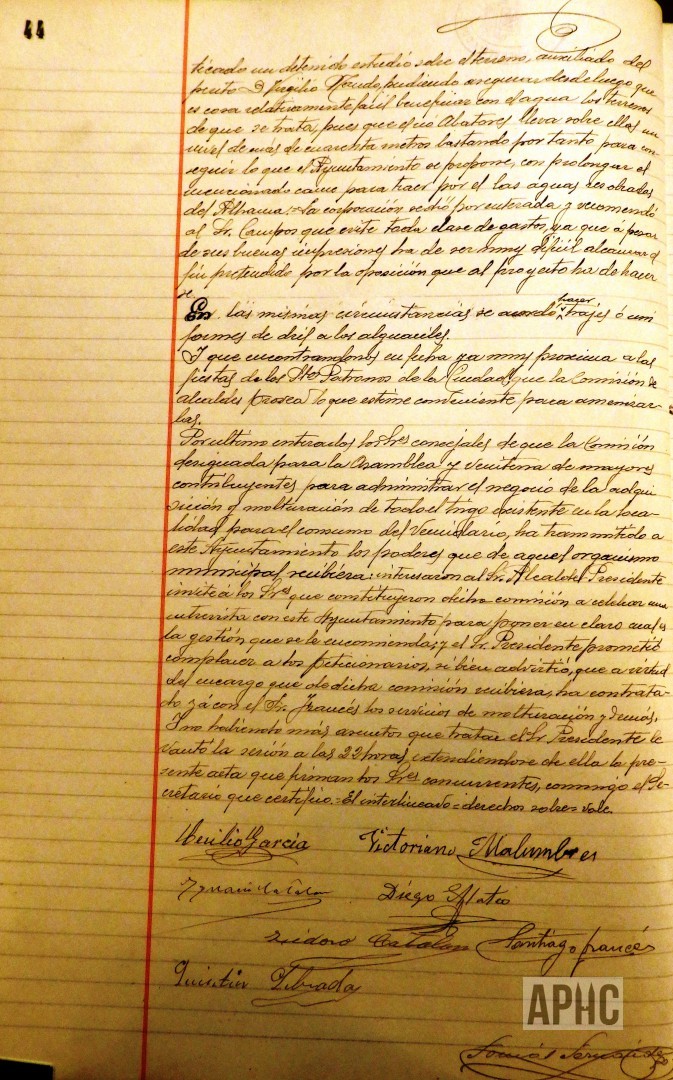 44
ticado un detenido estudio sobre el terreno, auxiliado del
perito D. Virgilio pudiendo asegurar desde luego que
es cosa relativamente fácil beneficiar con el agua los terrenos
de que se trata, pues que el rio Abatores lleva sobre ellos un
nivel de más de cuarenta metros bastando por tanto para con-
seguir lo que el Ayuntamiento se propone, con prolongar el
mencionado cauce para traer por él las aguas
del Alhama: La corporación se dió por enterada y recomendó
al Sr. Campos que evite toda clase de gastos, ya que a pesar
de sus buenas impresiones ha de ser muy dificil alcanzar el
fin pretendido por la oposición que al proyecto ha de hacer
se.
En las mismas circunstancias se acordó hacer trajes ó uni
formes de dril a los alguaciles.
Y que encontrandonos en fecha ya muy proxima a las
fiestas de los Stos Patronos de la Ciudad, que la Comisión de
alcaldes provea lo que estime conveniente para amenizar-
las.
Por ultimo enterados los Sres concejales de que la Comisión
designada para la Asamblea y Veintena de mayores
contribuyentes para administrar el negocio de la adqui
sición y molturación de todo el trigo existente en la loca-
lidad para el consumo del Vecindario, ha transmitido a
este Ayuntamiento los poderes que de aquel organismo
municipal recibiera: interesaron al Sr. Alcalde Presidente
invite a los Sres que constituyeron dicha comisión a celebrar una
entrevista con este Ayuntamiento para poner en claro cual es
la gestión que se le encomienda; y el Sr. Presidente prometió
complacer a los peticionarios, si bien advirtió, que a virtud
del encargo que de dicha comisión recibiera, ha contrata-
do ya con el Sr. Francés los servicios de molturación y demás.
Y no habiendo más asuntos que tratar el Sr Presidente le
vantó la sesión a las 22 horas, extendiendose de ella la pre-
sente acta que firman los Sres concurrentes, conmigo el Se-
cretario que certifico.= El interlineado = derechos sobre = vale.
García Victoriano Malumbres
Diego Mateo
Isidoro Catalan Santiago Francés
APHC